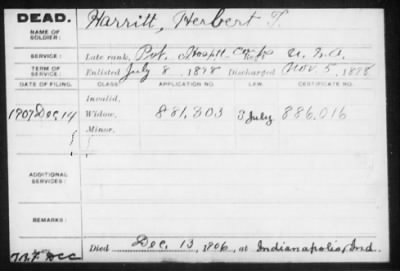 DEAD.
NAME OF SOLDIER: Harritt, Herbert T.
SERVICE: Late rank, Pvt. Hosptl. Corps U.S.A.
TERM OF SERVICE: Enlisted July 8 1898 Discharged Nov. 5, 1898
DATE OF FILING. CLASS. APPLICATION NO. LAW. CERTIFICATE NO.
Invalid,
1907 Dec 14 Widow, 881,803 July 886,016
Minor,
ADDITIONAL SERVICES:
REMARKS:
Died Dec. 13, 1906 at Indianapolis, Ind.